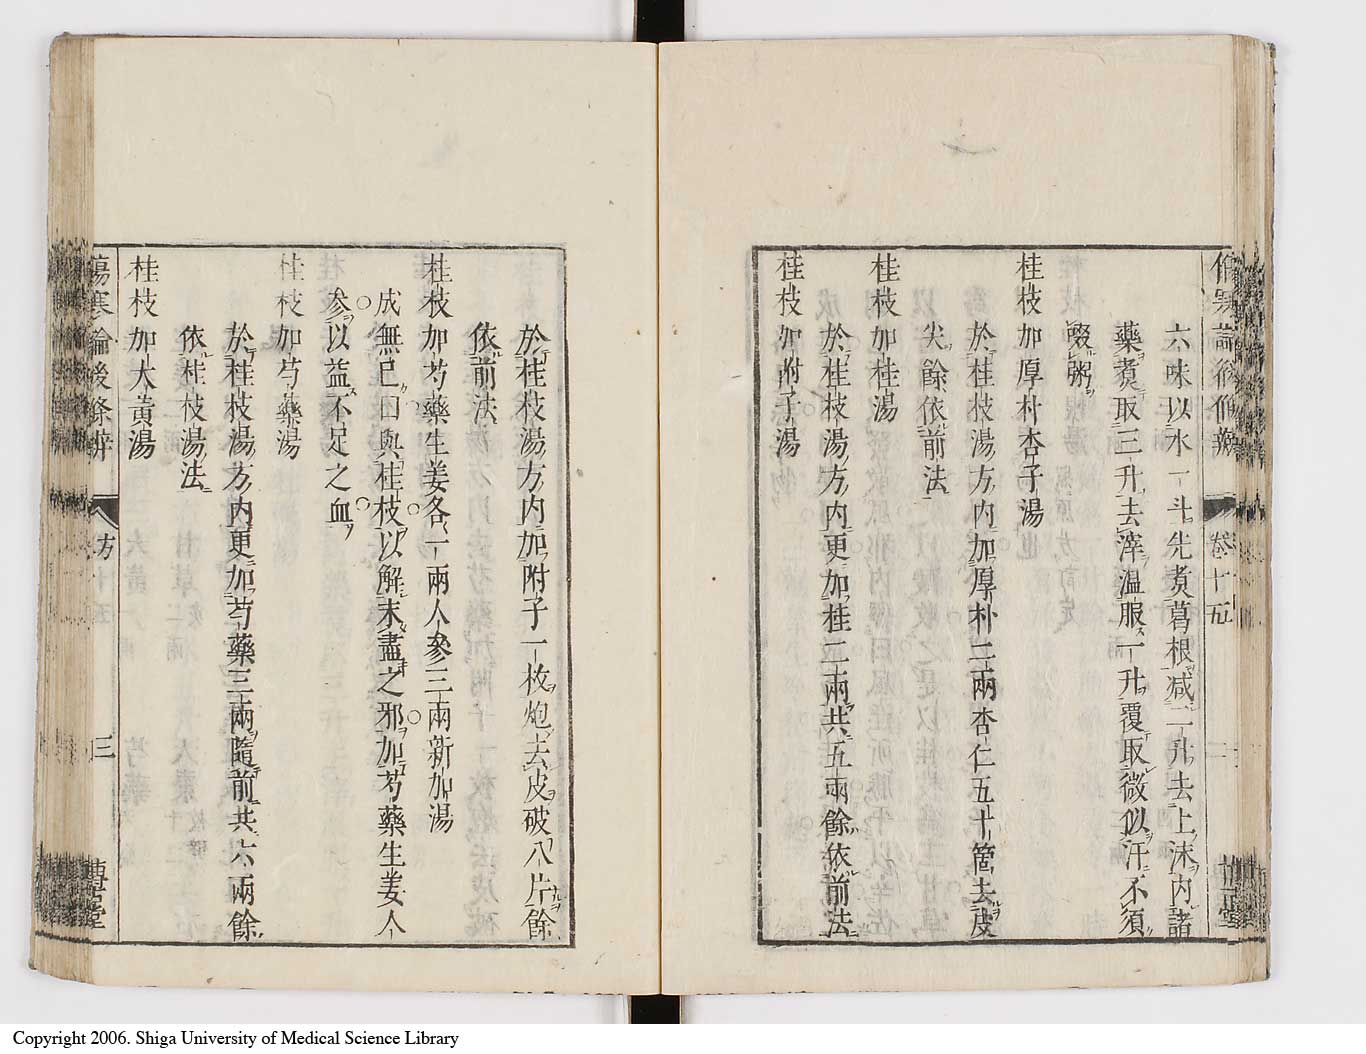 六味以水一斗先煮葛根減二升去上沫內諸
藥煮取三升去滓溫服一升覆取微似汗不須
啜粥
桂枝加厚朴杏子湯
於桂枝湯方內加厚朴二兩杏仁五十箇去皮
尖餘依前法
桂枝加桂湯
於桂枝湯方內更加桂二兩共五兩餘依前法
桂枝加附子湯
於桂枝湯方內加附子一枚炮去皮破八片餘
依前法
桂枝加芍藥生姜各一兩人參三兩新加湯
成無己曰與桂枝以解未盡之邪加芍藥生姜人
参以益不足之血
桂枝加芍藥湯
於桂枝湯方內更加芍藥三兩隨前共六兩餘
依桂枝湯法
桂枝加大黃湯
傷寒論後條辨
方十五
三
卷十五
Copyright 2006. Shiga University of Medical Science Library